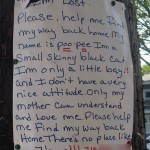 I'm Lost
Please, help me Find
my way back home. My
name is poo pee I'm a
Small skinny black cat
I'm only a little boy
and I don't have a very
nice attitude Only my
mother can understand
and Love me. Please help
me Find my way back
Home. There's no place like